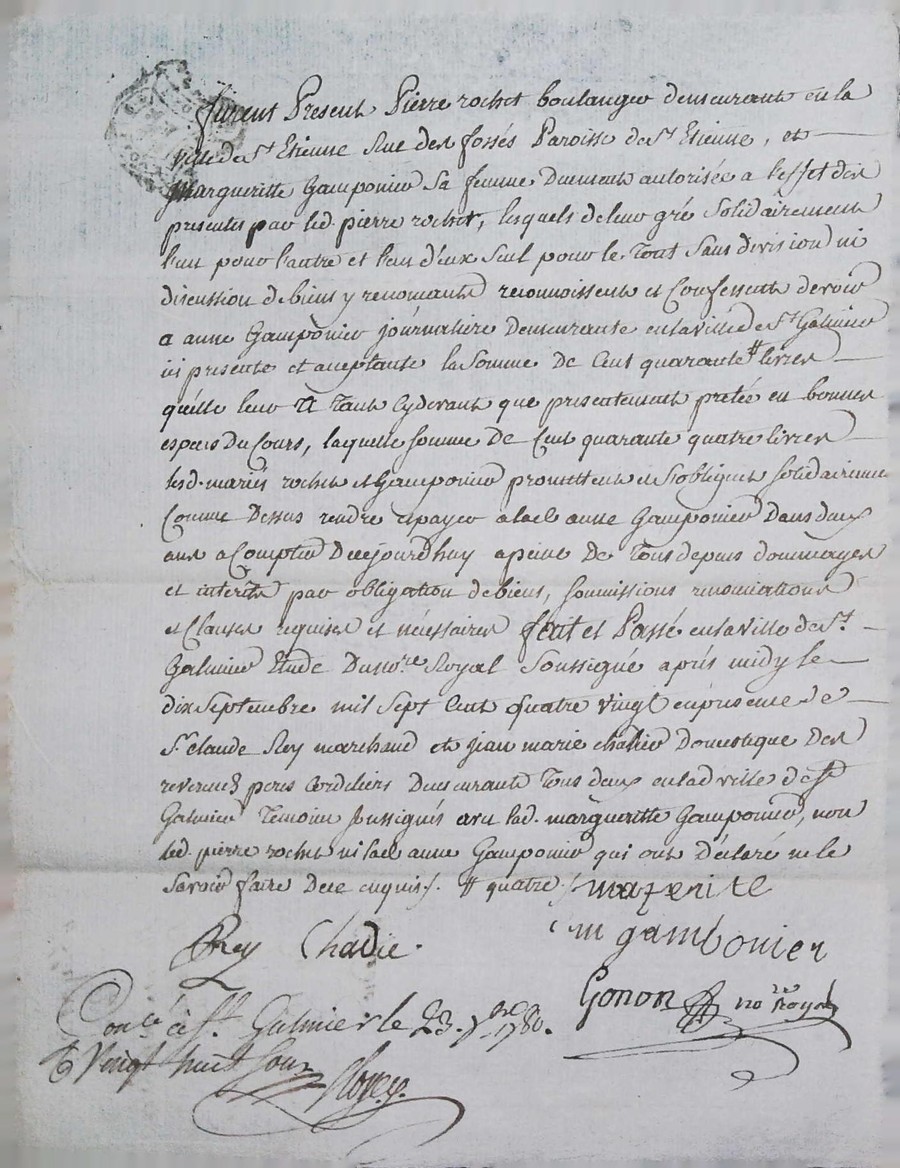 furent Present Pierre rochet boulanger demeurant en la
ville de St Etienne Rue des fossés Paroisse de St Etienne, et
Margueritte Gamponier Sa femme Duement autorisée a l'effet des
presentes par led. pierre rochet, lesquels de leur gré Solidairement
l'un pour l'autre et l'un d'eux Seul pour le Tout Sans division ni
discussion de biens y renonçants reconnoissent et Confessent devoir
a anne Gamponier journaliere Demeurante en la ville de St Galmier
ici presente et acceptante la Somme De Cent quarante # livres
qu'elle leur A Tant Cydevant que presentement pretée en bonnes
especes Du Cours, laquelle Somme De Cent quarante quatre livres
lesd. mariés rochet et Gamponier promettent et S'obligent solidairement
Comme Dessus rendre et payer a lad. anne Gamponier Dans deux
ans a Compter Decejourdhuy a peine De Tous depens dommages
et interets par obligation de biens, soumissions renonciations
et Clauses requises et nécessaires fait et Passé en la ville de St
Galmier Etude Du nore Royal Soussigné aprés midy le
dix Septembre mil Sept Cent quatre vingt en presence de
Sr Claude Rey marchand et jean marie chadier Domestique Des
reverends peres Cordeliers Demeurant Tous deux en lad ville de St
Galmier Temoins Soussignés avec lad. margueritte Gamponier, non
led. pierre rochet ni lad anne Gamponier qui ont Déclaré ne le
Savoir faire De ce enquis ./. # quatre ./. margerite
Rey Chadie. gambonier
Gonon nore Royal
Conlé à St Galmier le 23. 7bre 1780.
R Vingt huit sous